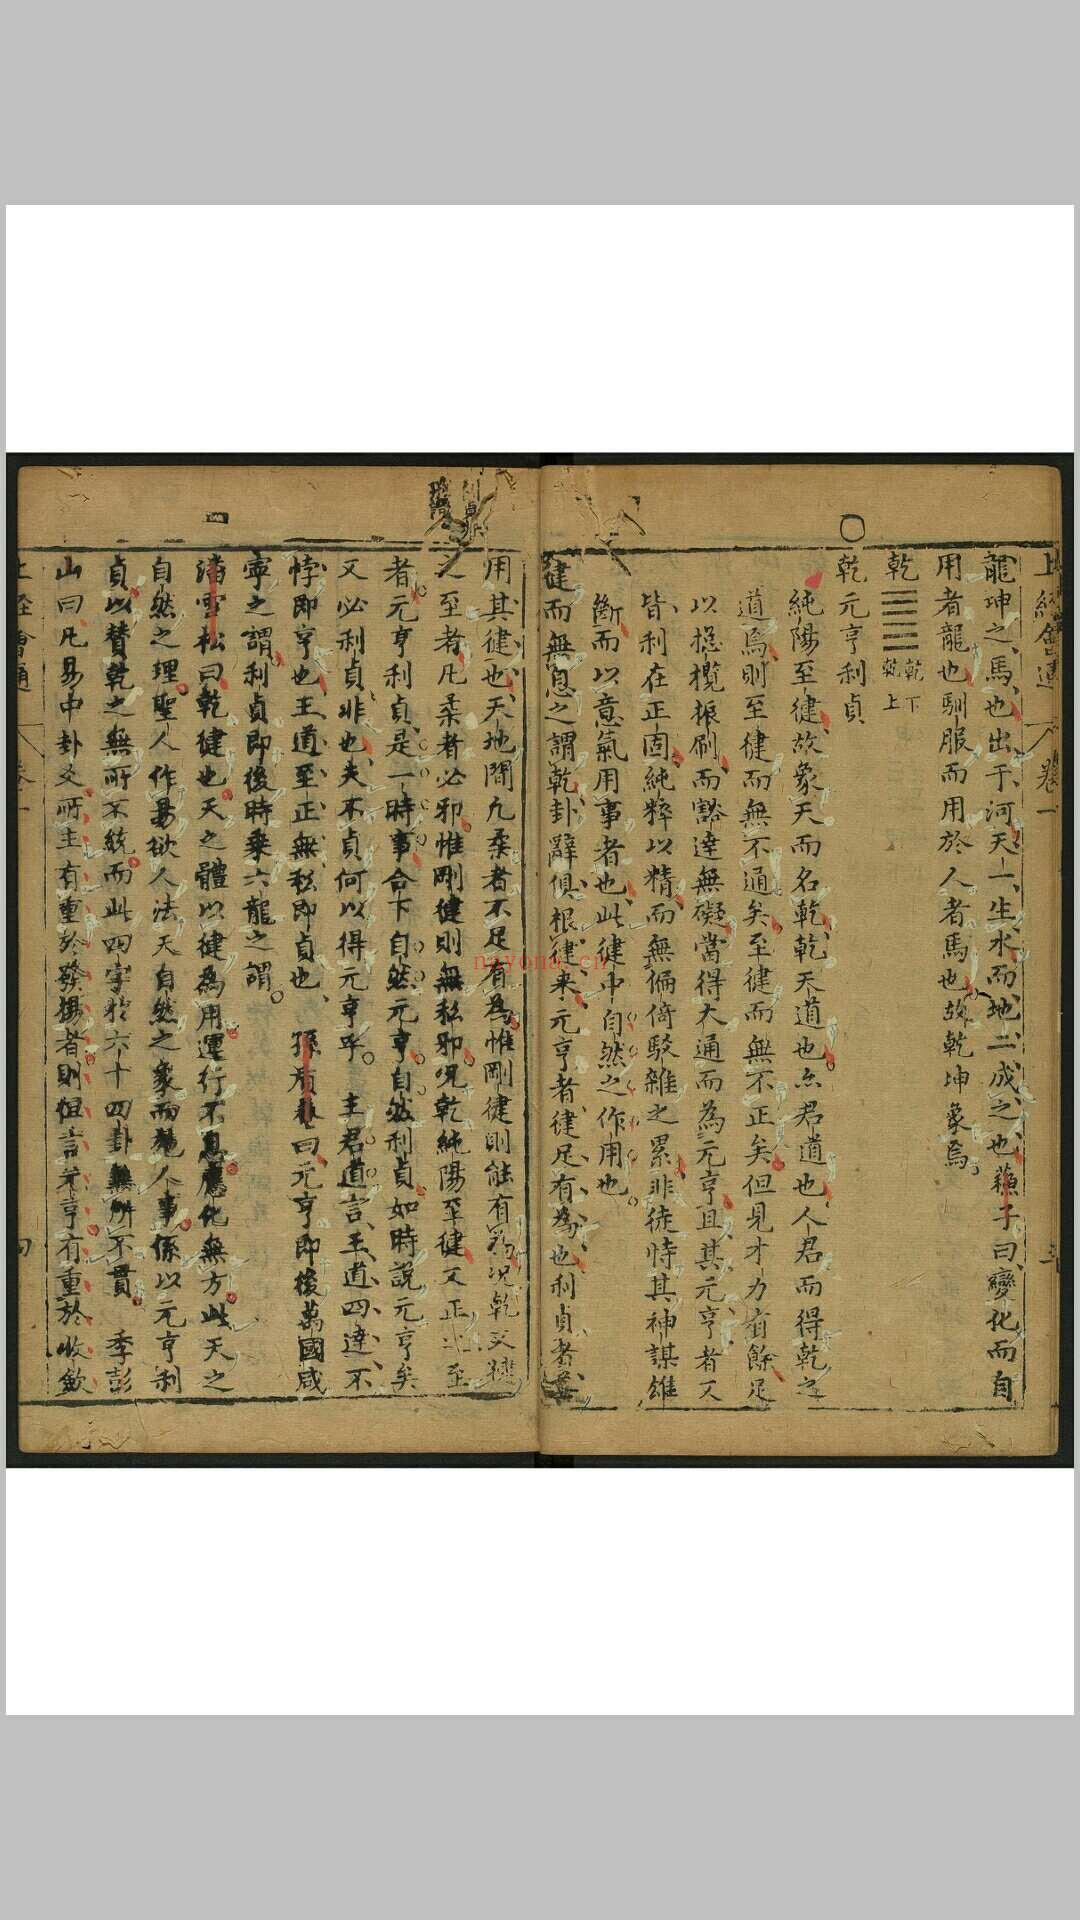 上經會通 卷一
龍坤之馬也出于河天一生水而地二成之也蘓子曰變化而自
用者龍也馴服而用於人者馬也故乾坤象焉
乾 乾下
乾上
乾元亨利貞
純陽至健故象天而名乾乾天道也亦君道也人君而得乾之
道焉則至健而無不通矣至健而無不正矣但見才力有餘足
以摠攬振刷而豁達無礙當得大通而為元亨且其元亨者又
皆利在正固純粹以精而無偏倚駁雜之累非徒恃其神謀雄
斷而以意氣用事者也此健中自然之作用也
健而無息之謂乾卦辭俱根健來元亨者健足有為也利貞者善
用其健也天地間凢柔者不足有為惟剛健則能有為况乾又健
之至者凢柔者必邪惟剛健則無私邪况乾純陽至健又正之至
者元亨利貞是一時事合下自然元亨自然利貞如時說元亨矣
又必利貞非也夫不貞何以得元亨乎 主君道言王道四達不
悖即亨也王道至正無私即貞也 孫質菴曰元亨即後萬國咸
寧之謂利貞即後時乘六龍之謂
潘雪松曰乾健也天之體以健為用運行不息應化無方此天之
自然之理聖人作易欲人法天自然之象而施人事係以元亨利
貞以賛乾之無所不統而此四字於六十四卦無所不貫 季彭
山曰凢易中卦爻所主有重於發揚者則但言元亨有重於收斂
上經會通 卷一 四
nayona.cn